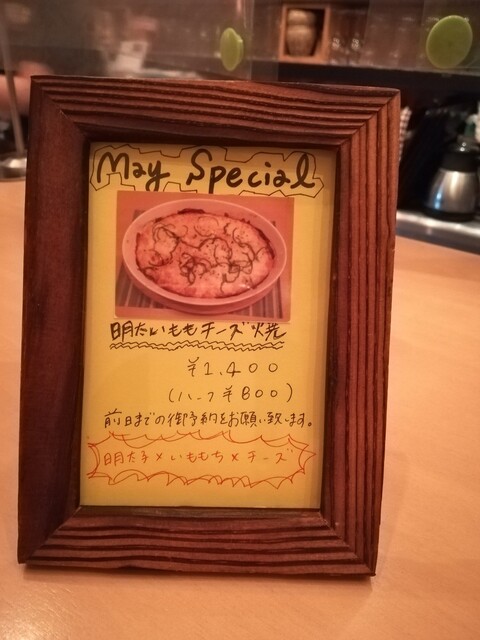 May Special
明たいももチーズ焼
¥1,400
(ハーフ¥800)
前日までの御予約をお願い致します。
明太子×いももち×チーズ